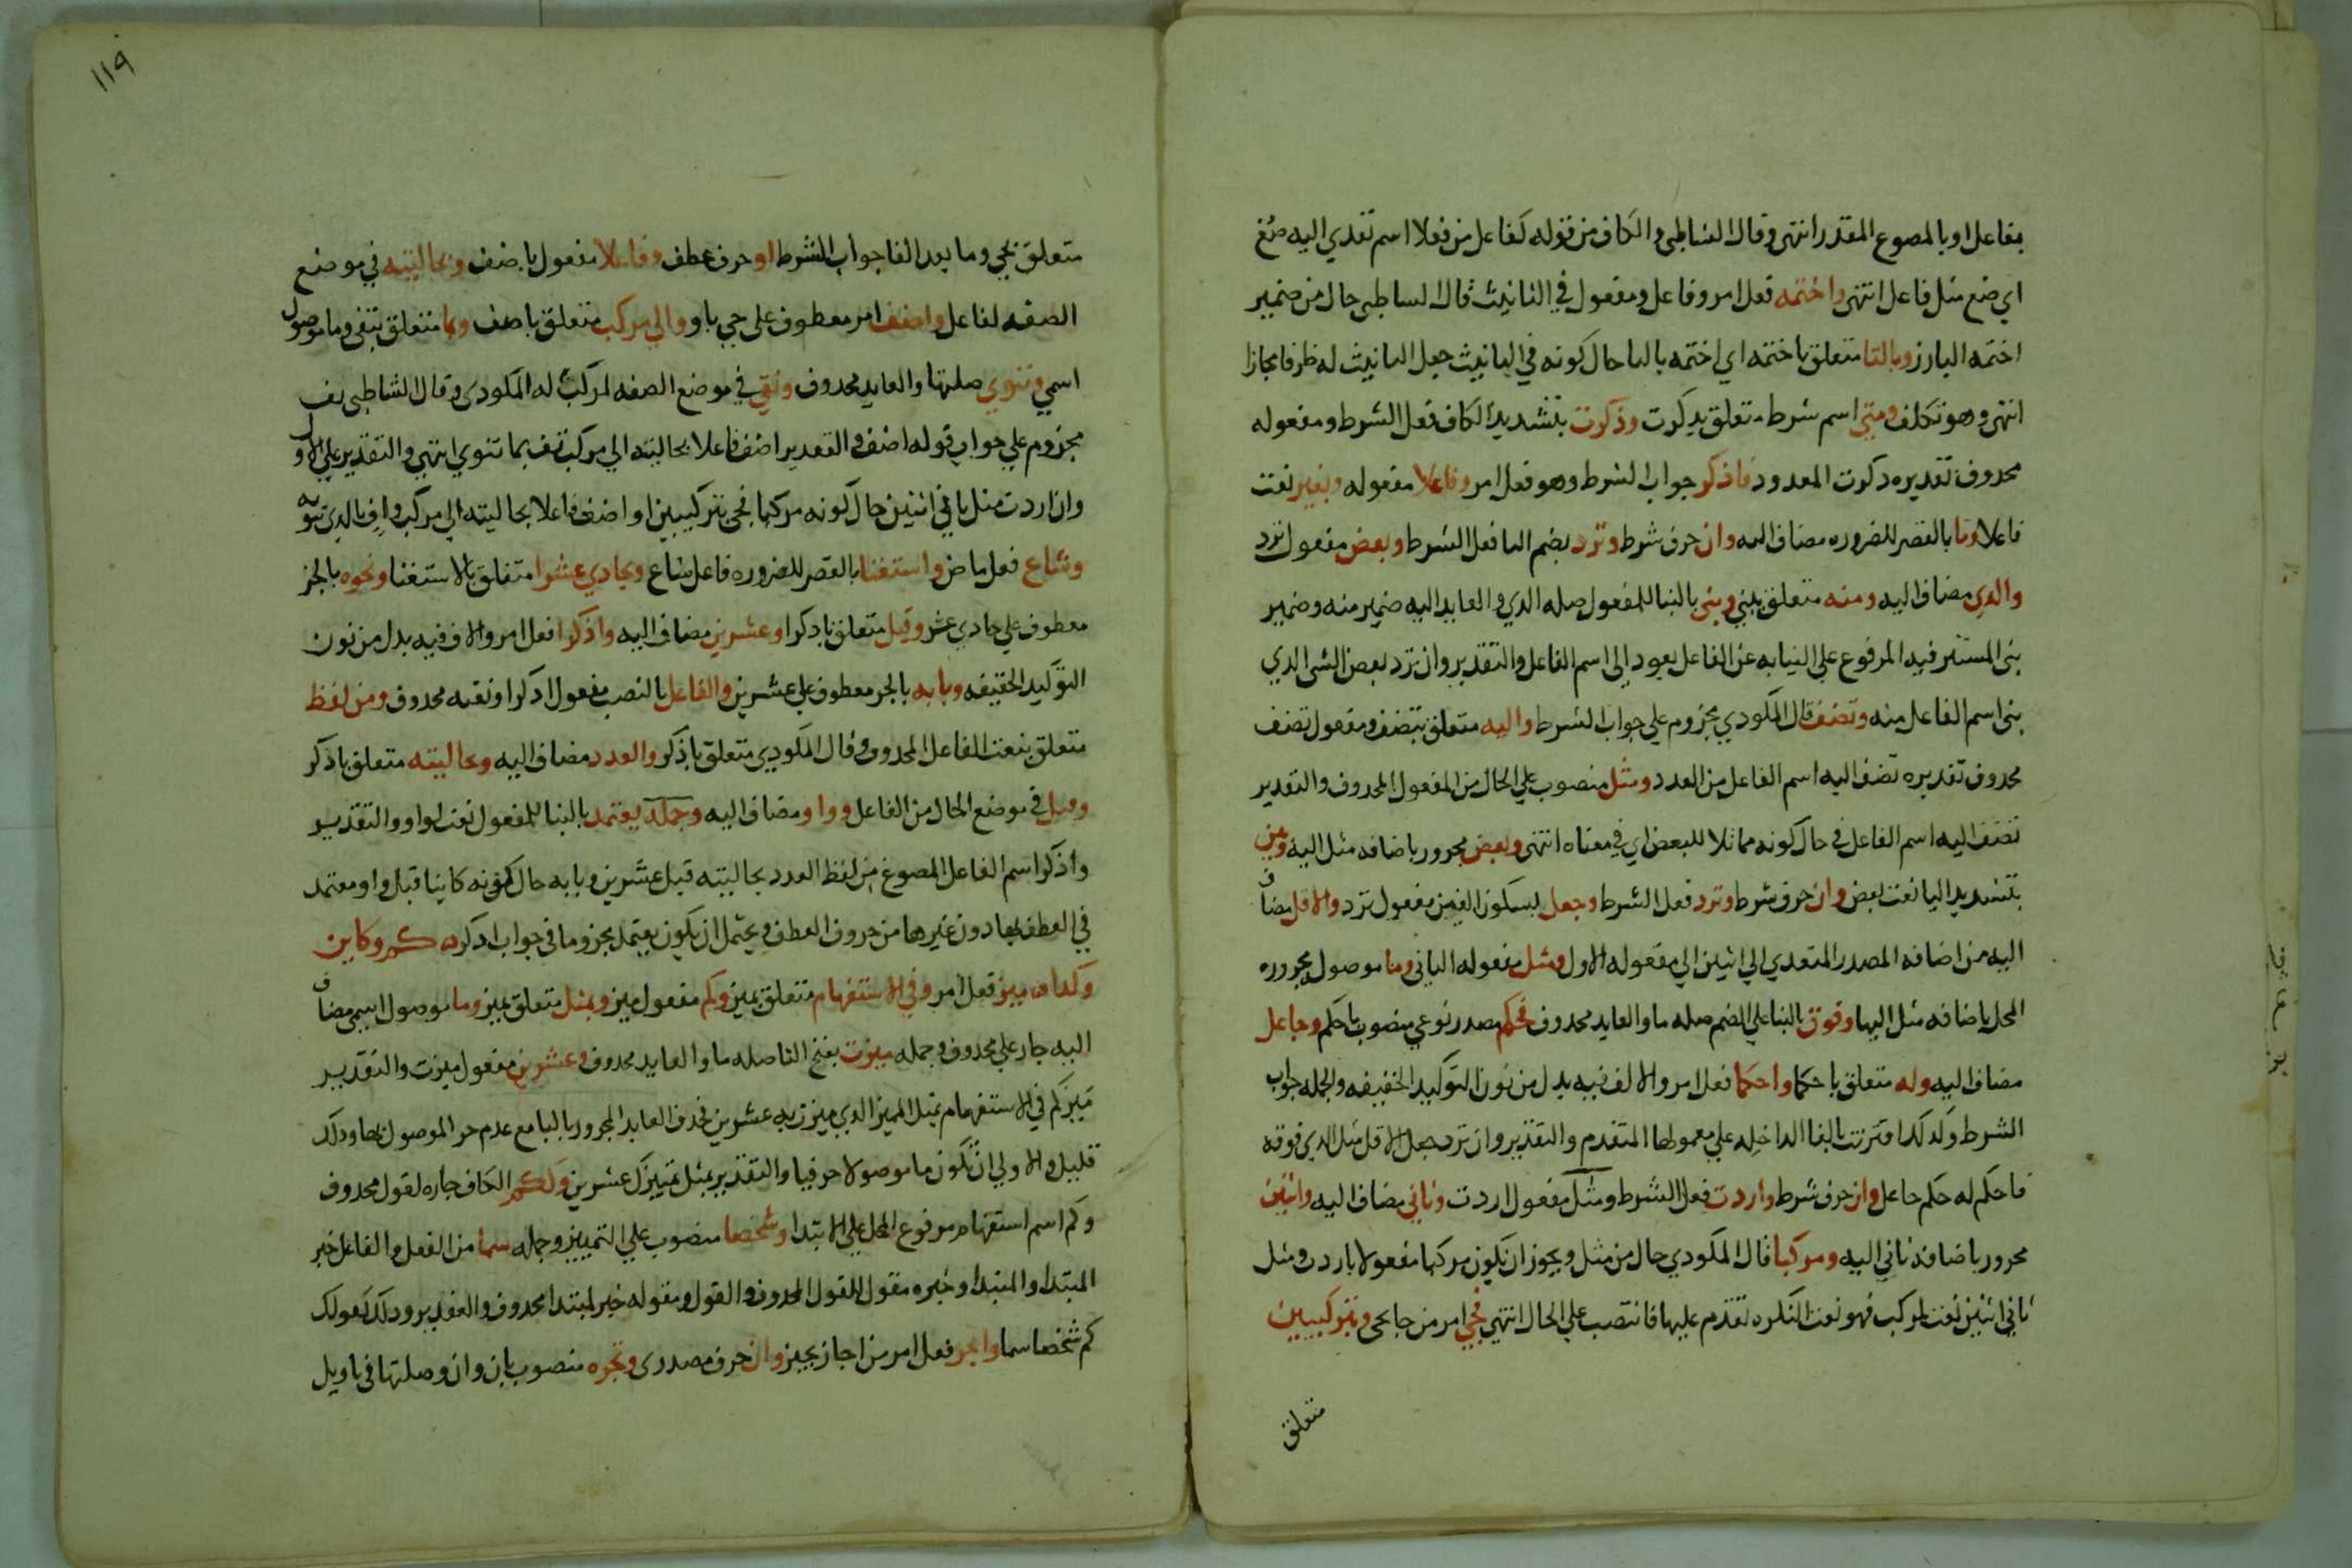 بفاعل او بالمصوغ المقدر انتهى وقال الشاطبي والكاف من قوله كفاعل من فعلا اسم تعدي اليه صغ
اي صغ مثل فاعل انتهى واختمه فعل امر وفاعل ومفعول في التانيث قال الشاطبي حال من ضمير
اختمه البارز وبالتا متعلق باختمه اي اختمه بالتا حال كونه في التانيث جعل التانيث له ظرفا مجازا
انتهى وهو تكلف ومتى اسم شرط متعلق بذكرت وذكرت بتشديد الكاف فعل الشرط ومفعوله
محذوف تقديره ذكرت المعدود فاذكر جواب الشرط وهو فعل امر وفاعلا مفعوله وبغير نعت
فاعلا وتا بالقصر للضروره مضاف اليه وان حرف شرط وترد بضم التا فعل الشرط وبعض مفعول ترد
والذي مضاف اليه ومنه متعلق ببني وبني بالبنا للمفعول صله الذي والعايد اليه ضمير منه وضمير
بني المستتر فيه المرفوع علي النيابه عن الفاعل يعود الي اسم الفاعل والتقدير وان ترد بعض الشي الذي
بني اسم الفاعل منه وتضف قال المكودي مجزوم علي جواب الشرط واليه متعلق بتضف ومفعول تضف
محذوف تقديره تضف اليه اسم الفاعل من العدد ومثل منصوب علي الحال من المفعول المحذوف والتقدير
تضف اليه اسم الفاعل في حال كونه مماثلا للبعض اي في معناه انتهى وبعض مجرور باضافه مثل اليه وبين
بتشديد اليا نعت بعض وان حرف شرط وترد فعل الشرط وجعل بسكون العين مفعول ترد والاقل مضاف
اليه من اضافه المصدر المتعدي الي اثنين الي مفعوله الاول ومثل مفعوله الثاني وما موصول مجروره
المحل باضافه مثل اليها وفوق بالبنا علي الضم صله ما والعايد محذوف فحكم مصدر نوعي منصوب باحكم وجاعل
مضاف اليه وله متعلق باحكما واحكما فعل امر والالف فيه بدل من نون التوكيد الخفيفه والجمله جواب
الشرط وكذلك اقترنت بالفا الداخله علي معمولها المتقدم والتقدير وان ترد جعل الاقل مثل الذي فوقه
فاحكم له حكم جاعل وان حرف شرط واردت فعل الشرط ومثل مفعول اردت وثاني مضاف اليه واثنين
مجرور باضافه ثاني اليه ومركبا قال المكودي حال من مثل ويجوز ان يكون مركبا مفعولا باردت ومثل
ثاني اثنين نعت لمركب فهو نعت النكره تقدم عليها فانتصب علي الحال انتهي فجي امر من جا يجي وبتركيبين
متعلق
١١٩
متعلق بجي وما بعد الفا جواب الشرط او حرف عطف وفاعلا مفعول باضف وبحالتيه في موضع
الصفه لفاعل واضف امر معطوف علي جي باو والي مركب متعلق باضف وبما متعلق بتفي وما موصول
اسمي وتنوي صلتها والعايد محذوف وتفي في موضع الصفه لمركب له المكودي وقال الشاطبي يف
مجزوم علي جواب قوله اضف والتقدير اضف فاعلا بحالتيه الي مركب تف بما تنوي انتهي والتقدير علي الاول
وان اردت مثل ثاني اثنين حال كونه مركبا فجي بتركيبين او اضف فاعلا بحالتيه الي مركب واف بالذي تنويه
وشاع فعل ماض واستغنا بالقصر للضروره فاعل شاع وبحادي عشرا متعلق بالاستغنا ونحوه بالجر
معطوف علي حادي عشر وقبل متعلق باذكرا وعشرين مضاف اليه واذكرا فعل امر والالف فيه بدل من نون
التوكيد الخفيفه وبابه بالجر معطوف علي عشرين والفاعل بالنصب مفعول اذكرا ونعته محذوف ومن لفظ
متعلق بنعت الفاعل المحذوف وقال المكودي متعلق باذكر والعدد مضاف اليه وبحالتيه متعلق باذكر
وقبل في موضع الحال من الفاعل وواو مضاف اليه وجمله يعتمد بالبنا للمفعول نعت لواو والتقدير
واذكرا اسم الفاعل المصوغ من لفظ العدد بحالتيه قبل عشرين وبابه حال كونه كاينا قبل واو معتمد
في العطف بها دون غيرها من حروف العطف ويحتمل ان يكون يعتمد مجزوما في جواب اذكر كم وكاين
وكذا ميز فعل امر وفي الاستفهام متعلق بميز وكم مفعول ميز وبمثل متعلق بميز وما موصول اسمي مضاف
اليه جار علي محذوف وجمله ميزت بفتح التا صله ما والعايد محذوف وعشرين مفعول ميزت والتقدير
ميز كم في الاستفهام بمثل المميز الذي ميزت به عشرين فحذف العايد المجرور بالبا مع عدم جر الموصول بها وذلك
قليل والاولي ان تكون ما موصولا حرفيا والتقدير بمثل تمييزك عشرين وككم الكاف جاره لقول محذوف
وكم اسم استفهام مرفوع المحل علي الابتدا وشخصا منصوب علي التمييز وجمله سما من الفعل والفاعل خبر
المبتدا والمبتدا وخبره مقول للقول المحذوف والقول ومقوله خبر لمبتدا محذوف والتقدير وذلك كقولك
كم شخصا سما واجز فعل امر من اجاز يجيز وان حرف مصدري وتجره منصوب بان وان وصلتها في تاويل